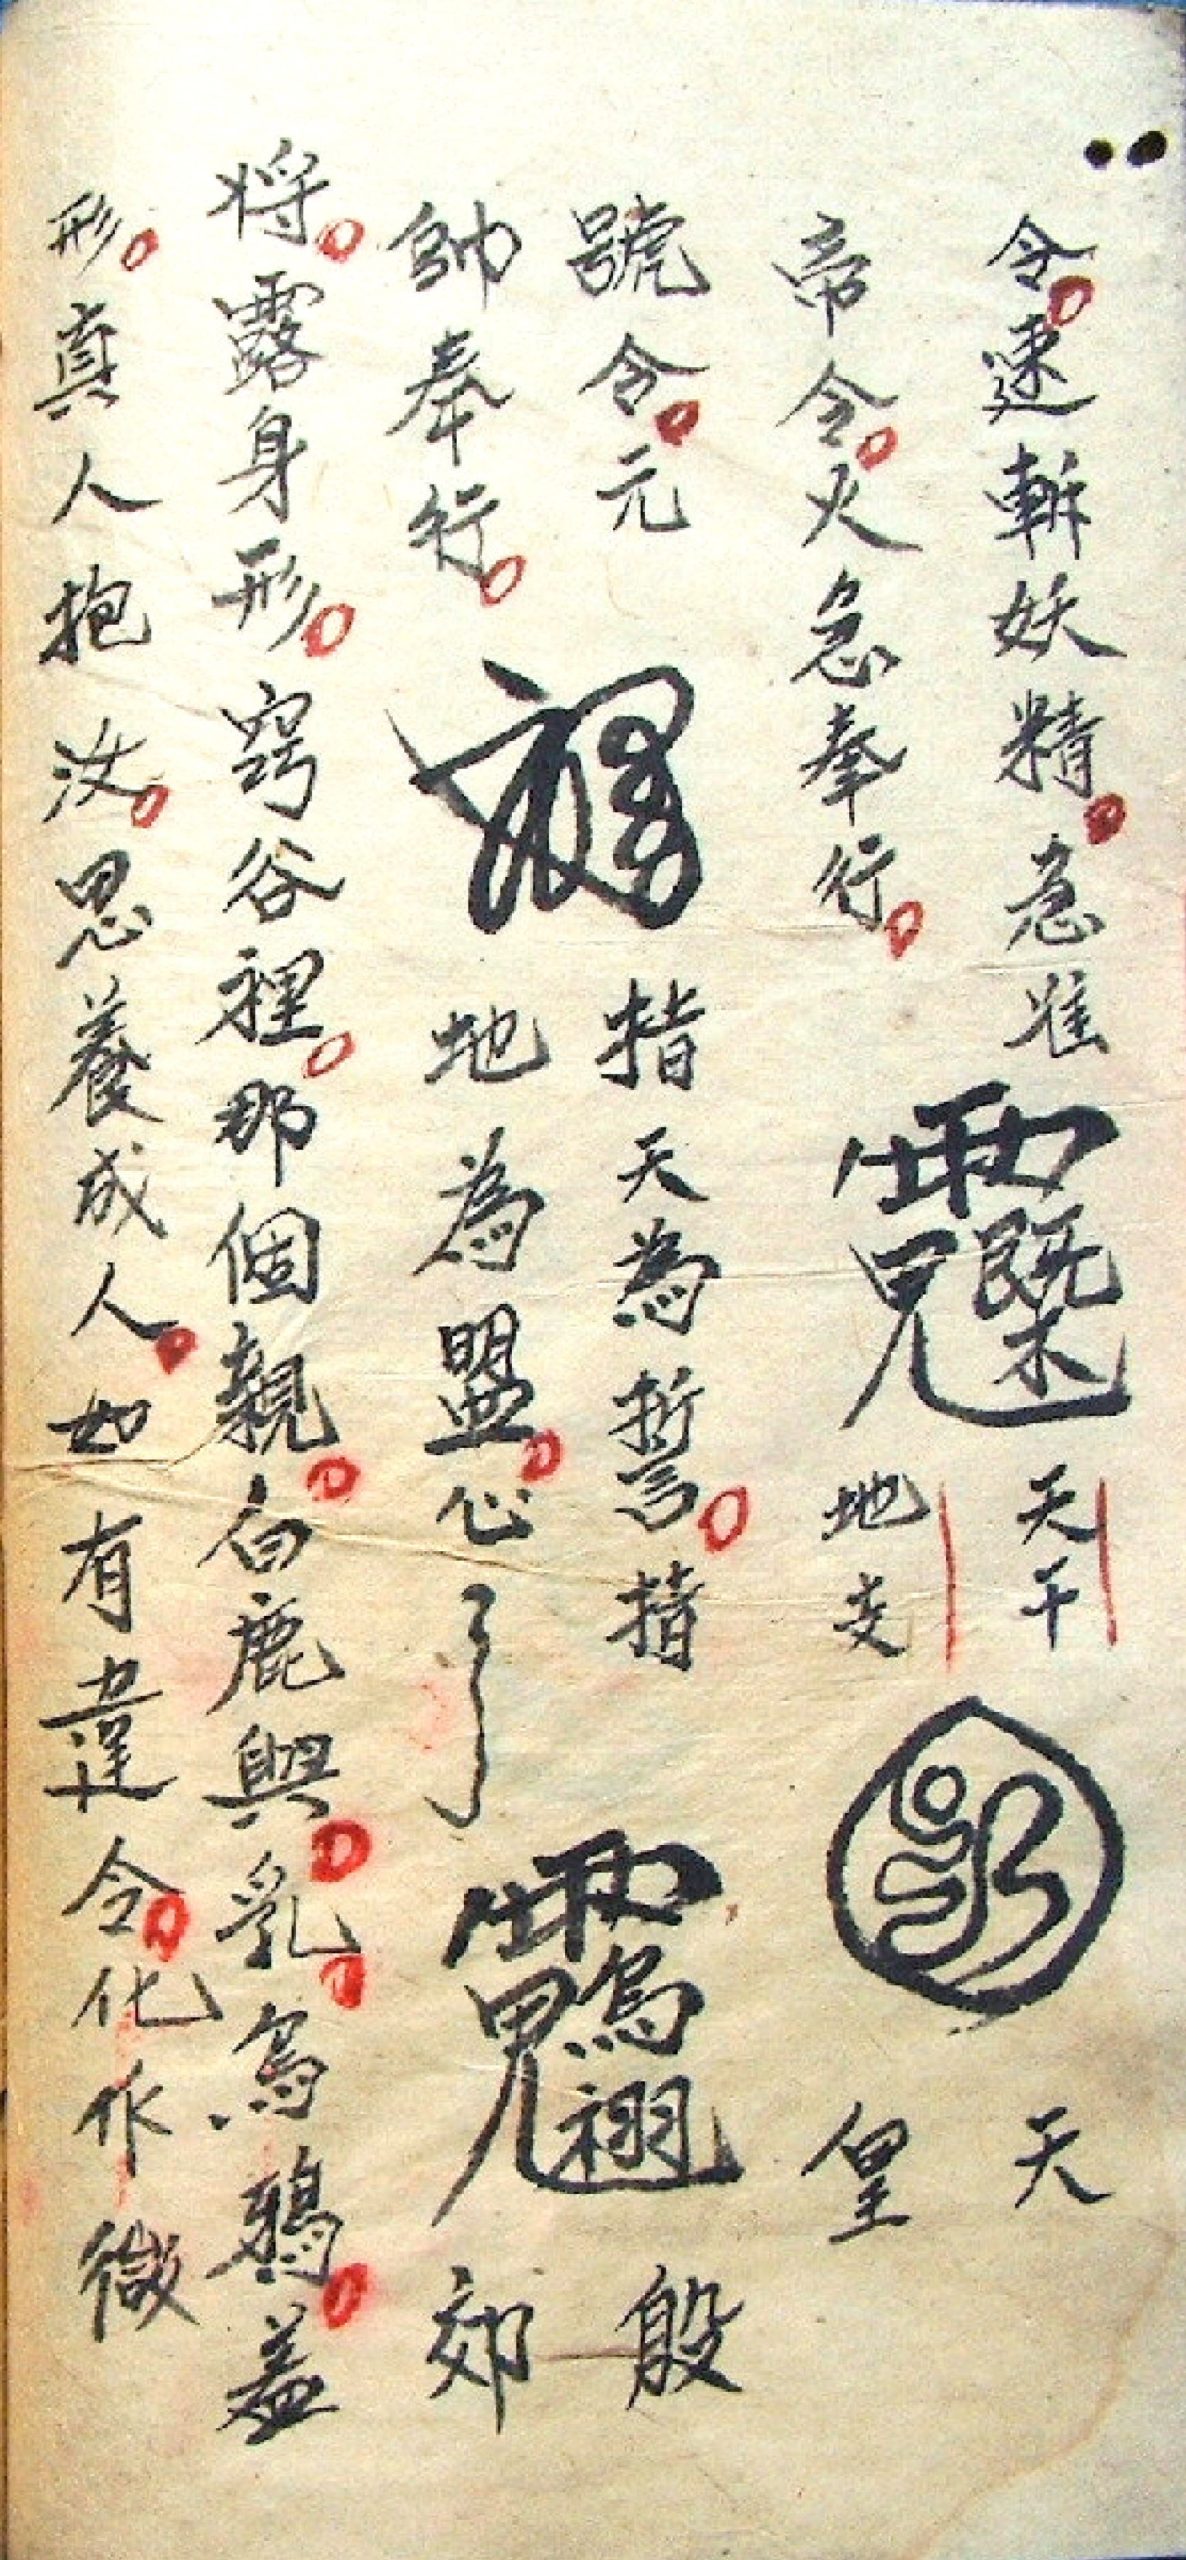 令速斬妖精急准
天干
天
帝令火急奉行
地支
皇
號令元
指天為誓指
殷
帥奉行
地為盟心
郊
将露身形窈谷裡那個親白鹿與乳烏鴉盖
形真人抱汝恩養成人如有違令化作微